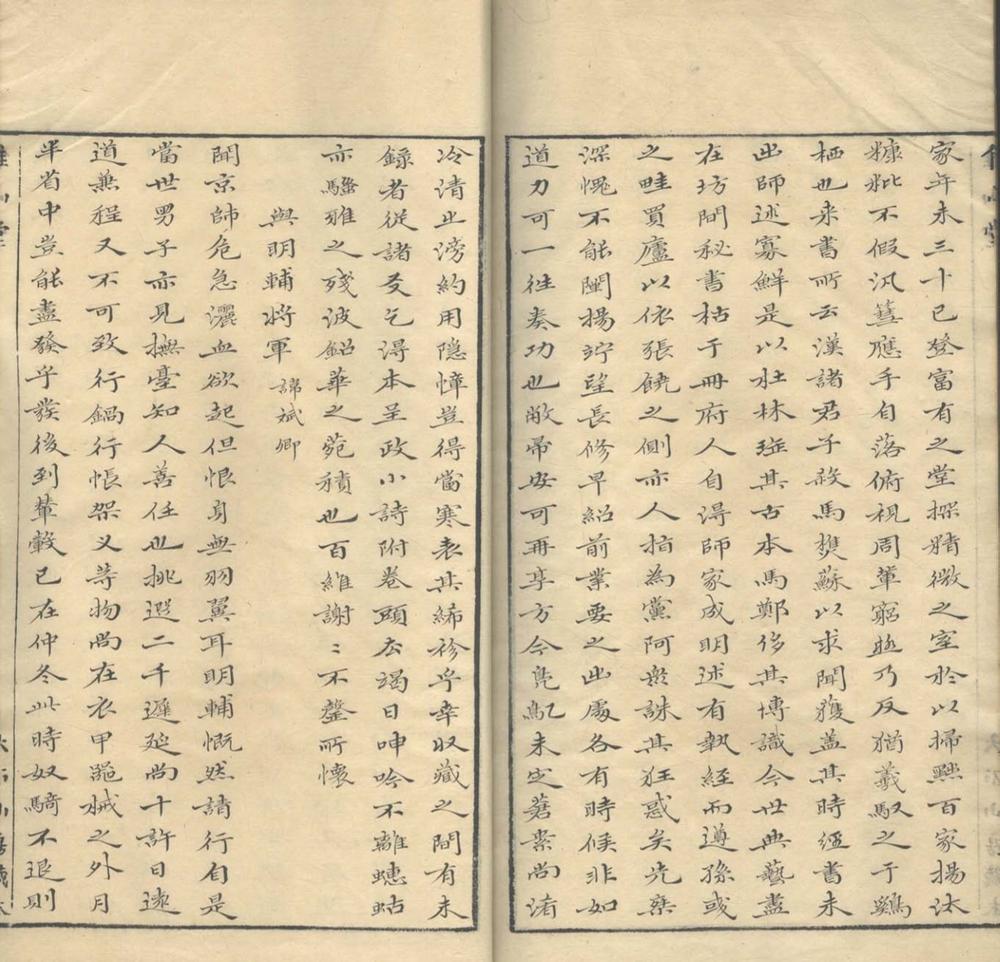 家年未三十已登富有之堂探精微之室於以掃黜百家揚汰
糠粃不假汎蒐應手自落俯視周輩窮跡乃反猶羲馭之于鷄
栖也来書所云漢諸君子殺馬樊蘇以求聞獲盖其時經書未
出師述寡鮮是以杜林珍其古本馬鄭侈其博識今世典藝盡
在坊間秘書枯于冊府人自得師家成明述有執經而遵孫或
之畦買廬以依張饒之側亦人指為黨阿衆誅其狂惑矣光棻
深愧不能闡揚竚望長修早紹前業要之出處各有時候非如
道力可一徃奏功也敝帚安可再享方今亂未定舊業尚渚
冷清止滂約用隠憚豈得當寒表其絺袗乎幸収藏之間有未
録者從諸友乞得本呈政小詩附卷頭去謁日呻吟不離蟪蛄
亦騷雅之殘波鉛華之菀積也百維謝〻不罄所懷
與明輔将軍 諱斌卿
聞京師危急灑血欲起但恨身無羽翼耳明輔慨然請行自是
當世男子亦見撫臺知人善任也挑選二千遲延尚十許日遠
道兼程又不可致行鍋行帳架义等物尚在衣甲器械之外月
半省中豈能盡發乎發後到輦轂已在仲冬此時奴騎不退則